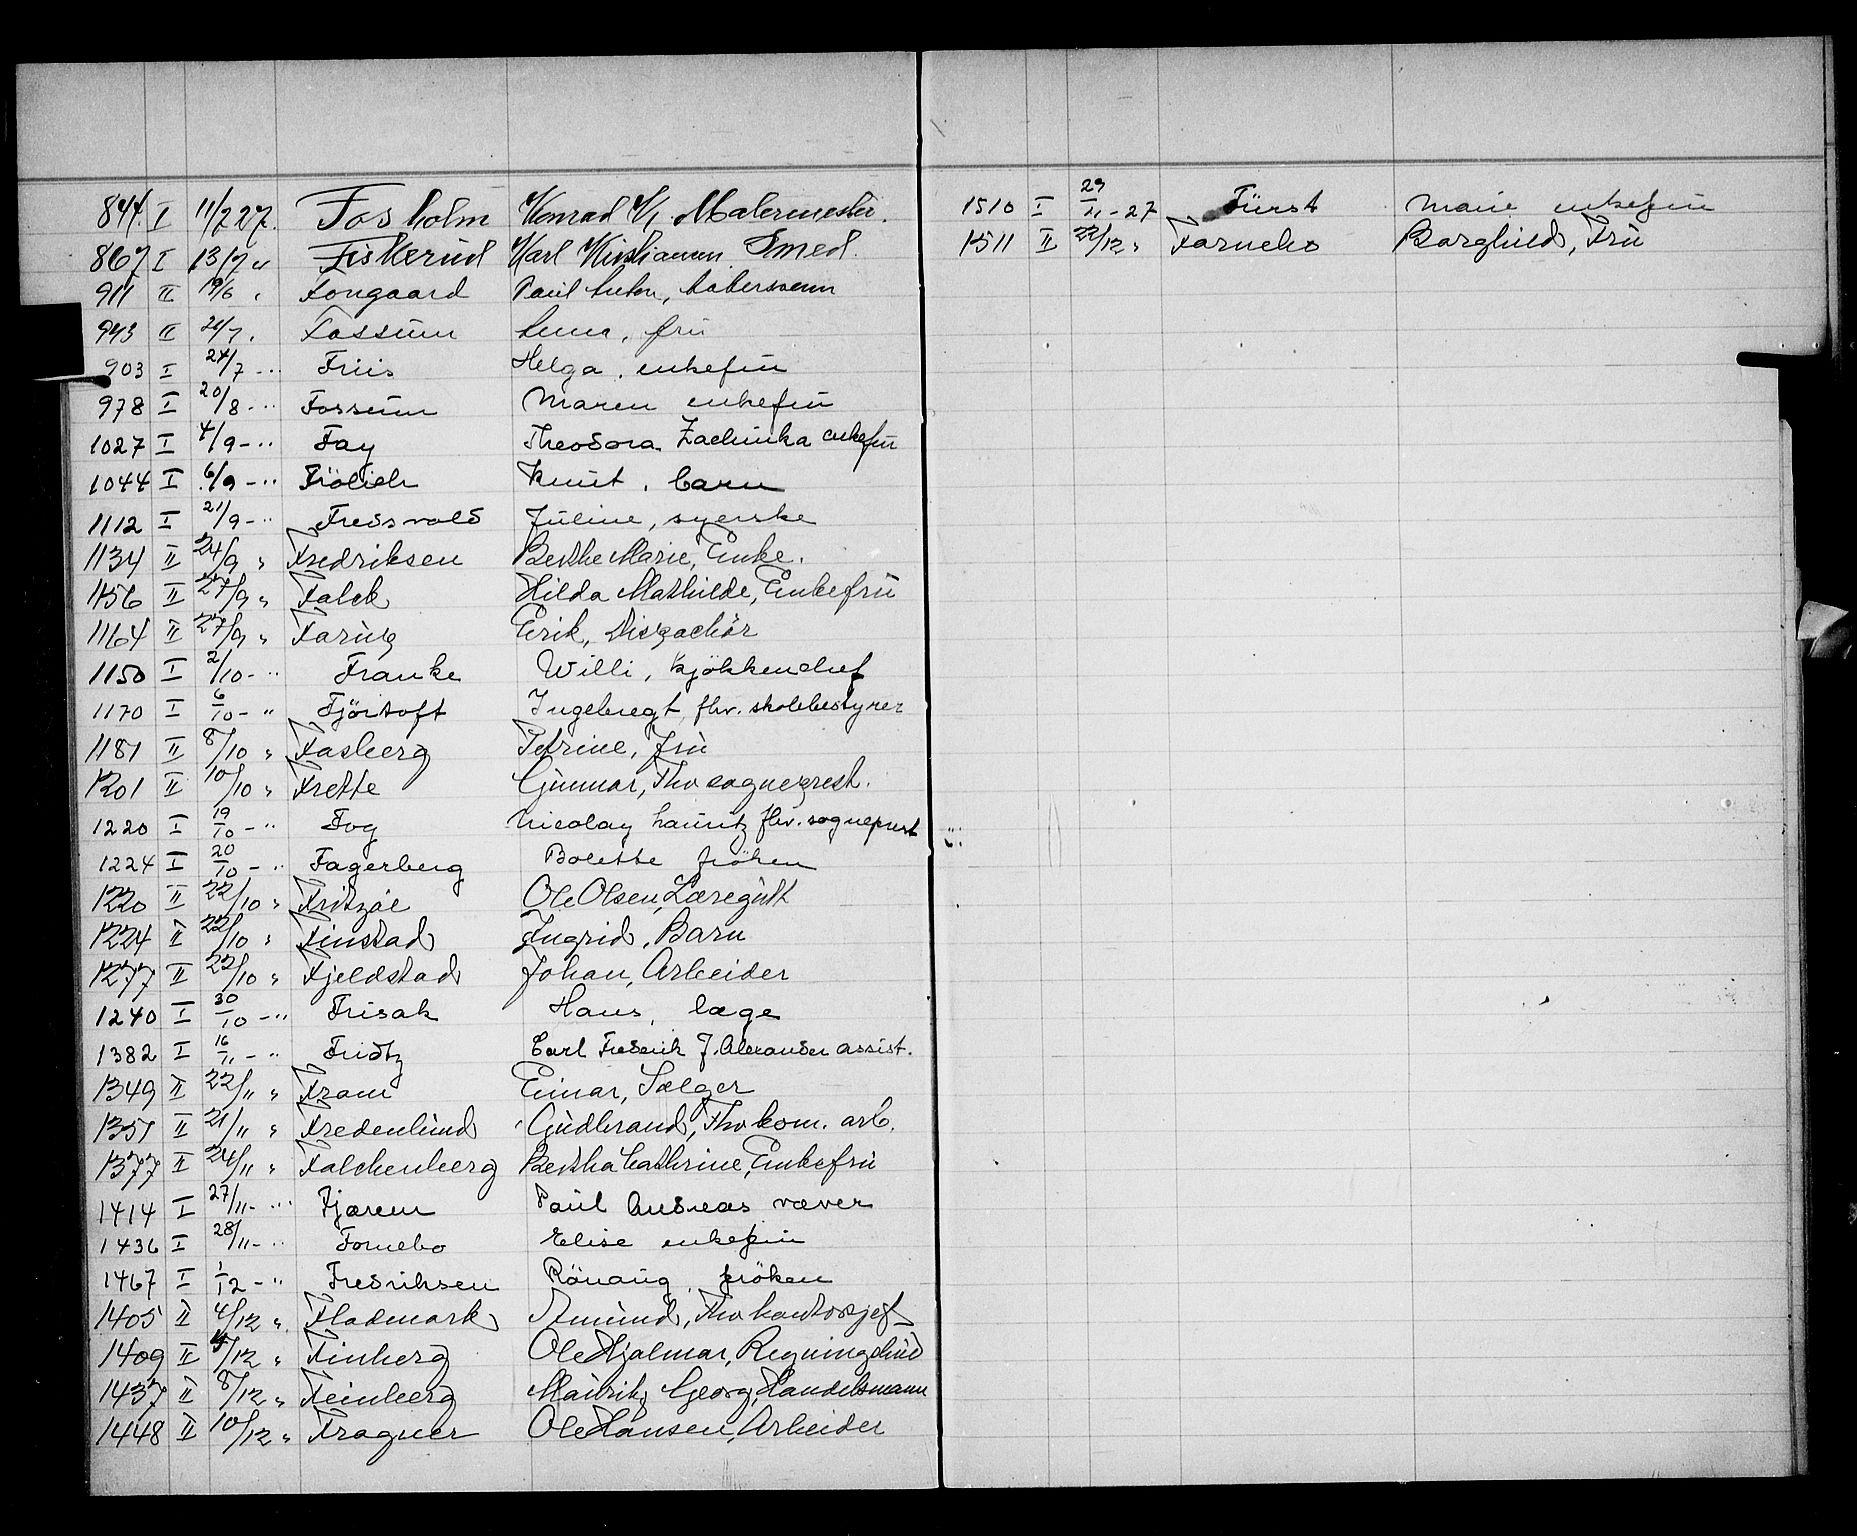 844. I 11/7 27. Fosholm Konrad K. Malermester.
867 I 13/7 " Fiskerud Karl Kristiansen Smed.
911 II 19/6 " Fongaard Paul Anton, Malersvenn
943 II 21/7 " Fossum Anna, fru
903 I 24/7 - " Friis Helga, enkefru
978 I 20/8 - " Fossum Maren enkefru
1027 I 4/9 - " Fay Theodora enkefru
1044 I 6/9 - " Frölich Knut, barn
1112 I 21/9 - " Fredsvold Juline, syerske
1134 II 24/9 " Fredriksen Berthe Marie, Enke.
1156 II 27/9 " Falck Hilda Mathilde, Enkefru
1164 II 27/9 " Erik, Dispachör
1150 I 2/10 - " Franke Willi, kjökkenchef
1170 I 6/10 - " Fjörtoft Ingebregt, fhv. skolebestyrer
1181 II 8/10 " Fasberg Petrine, fru
1201 II 10/10 " Frette Gunnar, Fhv sogneprest.
1220 I 19/10 - " Fog Nicolay Lauritz fhv. sogneprest
1224 I 20/10 - " Fagerberg Bolette fröken
1220 II 22/10 " Fritzöe Ole Olsen, Læregutt
1224 II 22/10 " Finstad Ingrid, Barn
1277 II 22/10 " Fjeldstad Johan, Arbeider
1240 I 30/10 - " Frisak Hans, læge
1382 I 16/11 - " Fridtz Carl Frederik J. Alexander assist.
1349 II 22/11 " Fram Einar, Sælger
1351 II 21/11 " Fredenlund Gudbrand, Fhv kom. arb.
1377 II 24/11 " Falchenberg Bertha Cathrine, Enkefru
1414 I 27/11 - " Fjærem Paul Andreas væver
1436 I 28/11 - " Fornebo Elise enkefru
1467 I 1/12 - " Fredriksen Rönaug fröken
1405 II 4/12 " Fladmark Amund, Fhv kontorsjef
1409 II 5/12 " Finberg Ole Hjalmar, Regningsbud
1437 II 8/12 " Feinberg Mauritz Georg, Handelsmann
1448 II 10/12 " Fragner Ole Hansen, Arbeider
1510 I 29/11 - 27 Fürst Marie enkefru
1511 II 22/12 " Fornebo Borghild, Fru